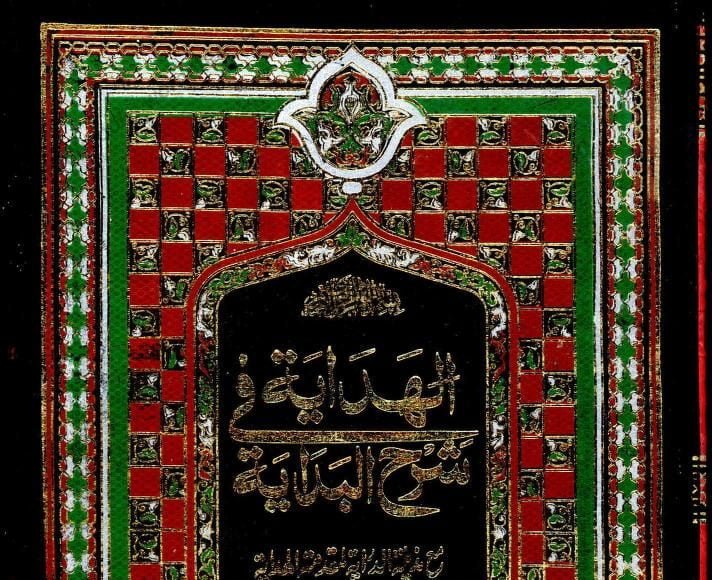 بسم الله الرحمن الرحيم
الهَدَايَة فِي
شَرْح البَدَايَة
مع